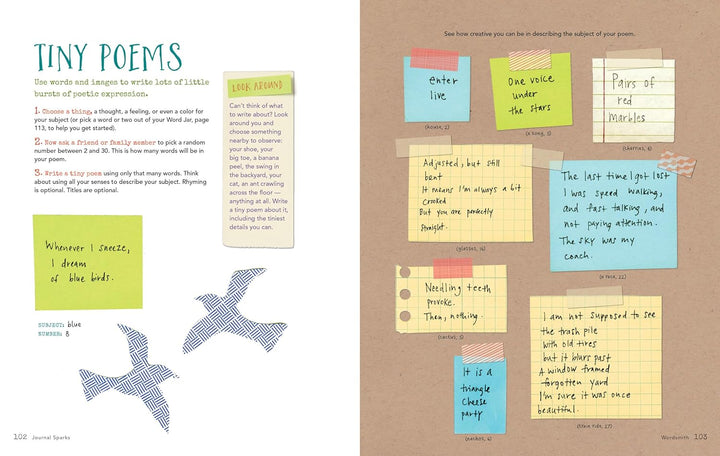 TINY POEMS
Use words and images to write lots of little
bursts of poetic expression.
1. Choose a thing, a thought, a feeling, or even a color for
your subject (or pick a word or two out of your Word Jar, page
113, to help you get started).
2. Now ask a friend or family member to pick a random
number between 2 and 30. This is how many words will be in
your poem.
3. Write a tiny poem using only that many words. Think
about using all your senses to describe your subject. Rhyming
is optional. Titles are optional.
LOOK AROUND
Can't think of what
to write about? Look
around you and
choose something
nearby to observe:
your shoe, your
big toe, a banana
peel, the swing in
the backyard, your
cat, an ant crawling
across the floor —
anything at all. Write
a tiny poem about it,
including the tiniest
details you can.
Whenever I sneeze,
I dream
of blue birds.
SUBJECT: blue
NUMBER: 8
102 Journal Sparks
See how creative you can be in describing the subject of your poem.
enter
live
(house, 2)
One voice
under
the stars
(a song, 5)
Pairs of
red
Marbles
(cherries, 4)
Adjusted, but still
bent
It means I'm always a bit
crooked
But you are perfectly
straight.
(glasses, 16)
The last time I got lost
I was speed walking,
and fast talking, and
not paying attention.
The sky was my
coach.
(a race, 22)
Needling teeth
provoke.
Then, nothing.
(cactus, 5)
It is a
triangle
cheese
party
(nachos, 6)
I am not supposed to see
the trash pile
with old tires
but it blurs past
A window framed
forgotten yard
I'm sure it was once
beautiful.
(train ride, 27)
Wordsmith 103